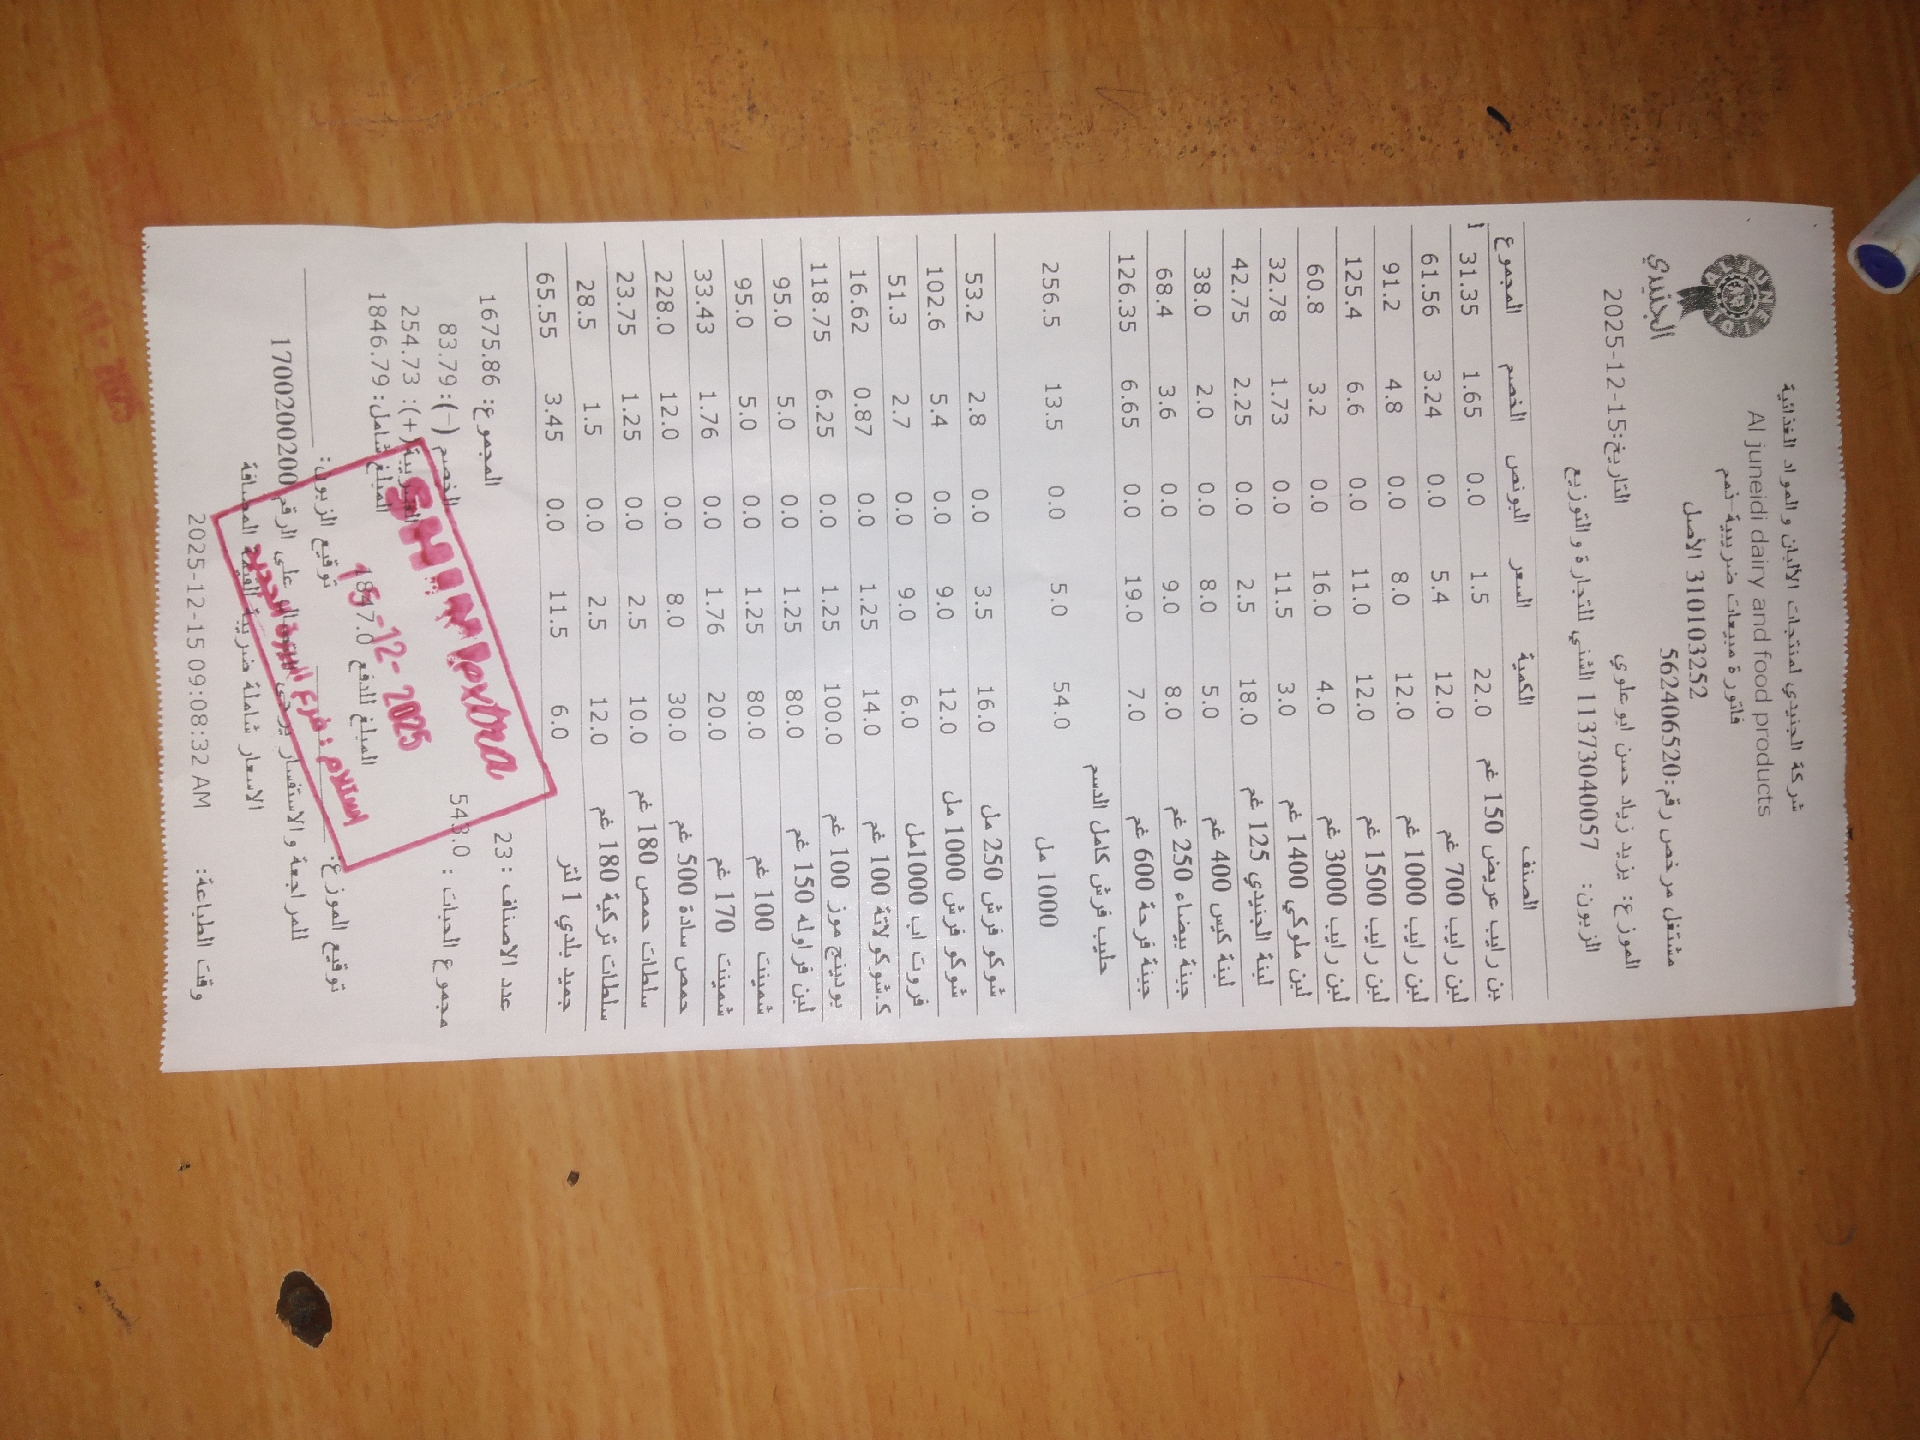 شركة الجنيدي لمنتجات الألبان و المواد الغذائية
Al juneidi dairy and food products
فاتورة مبيعات ضريبية-تمم
310103252 الأصل
مشتغل مرخص رقم:562406520
الجنيدي
الموزع: يزيد زياد حسن ابو علوي
التاريخ:2025-12-15
الزبون: 1137304005 7 الشني للتجارة و التوزيع
الصنف الكمية السعر البونص الخصم المجموع
بن رايب عريض 150 غم 22.0 1.5 0.0 1.65 31.35
لبن رايب 700 غم 12.0 5.4 0.0 3.24 61.56
لبن رايب 1000 غم 12.0 8.0 0.0 4.8 91.2
لبن رايب 1500 غم 12.0 11.0 0.0 6.6 125.4
لبن رايب 3000 غم 4.0 16.0 0.0 3.2 60.8
لبن ملوكي 1400 غم 3.0 11.5 0.0 1.73 32.78
لبنة الجنيدي 125 غم 18.0 2.5 0.0 2.25 42.75
لبنة كيس 400 غم 5.0 8.0 0.0 2.0 38.0
جبنة بيضاء 250 غم 8.0 9.0 0.0 3.6 68.4
جبنة فرحة 600 غم 7.0 19.0 0.0 6.65 126.35
حليب فرش كامل الدسم
1000 مل 54.0 5.0 0.0 13.5 256.5
شوكو فرش 250 مل 16.0 3.5 0.0 2.8 53.2
شوكو فرش 1000 مل 12.0 9.0 0.0 5.4 102.6
فروت اب 1000مل 6.0 9.0 0.0 2.7 51.3
ك.شوكولاتة 100 غم 14.0 1.25 0.0 0.87 16.62
بودينج موز 100 غم 100.0 1.25 0.0 6.25 118.75
لبن فراوله 150 غم 80.0 1.25 0.0 5.0 95.0
شمينت 100 غم 80.0 1.25 0.0 5.0 95.0
شمينت 170 غم 20.0 1.76 0.0 1.76 33.43
حمص سادة 500 غم 30.0 8.0 0.0 12.0 228.0
سلطات حمص 180 غم 10.0 2.5 0.0 1.25 23.75
سلطات تركية 180 غم 12.0 2.5 0.0 1.5 28.5
جميد بلدي 1 لتر 6.0 11.5 0.0 3.45 65.55
عدد الاصناف : 23 المجموع: 1675.86
مجموع الحبات : 543.0 الخصم (-): 83.79
الضريبة(+): 254.73
المبلغ شامل: 1846.79
المبلغ للدفع 1847.0
SHINI extra
15-12-2025
استلام: فرع
توقيع الموزع: توقيع الزبون:
للمراجعة و الاستفسار يرجى الاتصال على الرقم 1700200200
الاسعار شاملة ضريبة القيمة المضافة
وقت الطباعة: 2025-12-15 09:08:32 AM